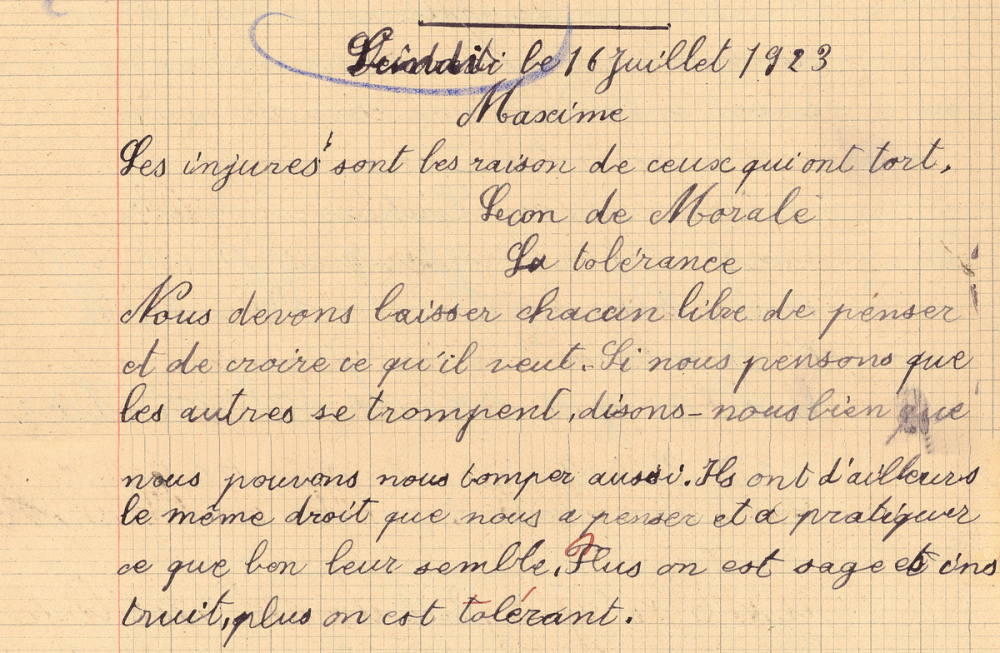 Lundi le 16 Juillet 1923
Maxime
Les injures sont les raison de ceux qui ont tort.
Leçon de Morale
La tolérance
Nous devons laisser chacun libre de pénser
et de croire ce qu'il veut. Si nous pensons que
les autres se trompent, disons-nous bien que
nous pouvons nous tomper aussi. Ils ont d'ailleurs
le même droit que nous a penser et a pratiquer
ce que bon leur semble. Plus on est sage et ins
truit, plus on est tolérant.